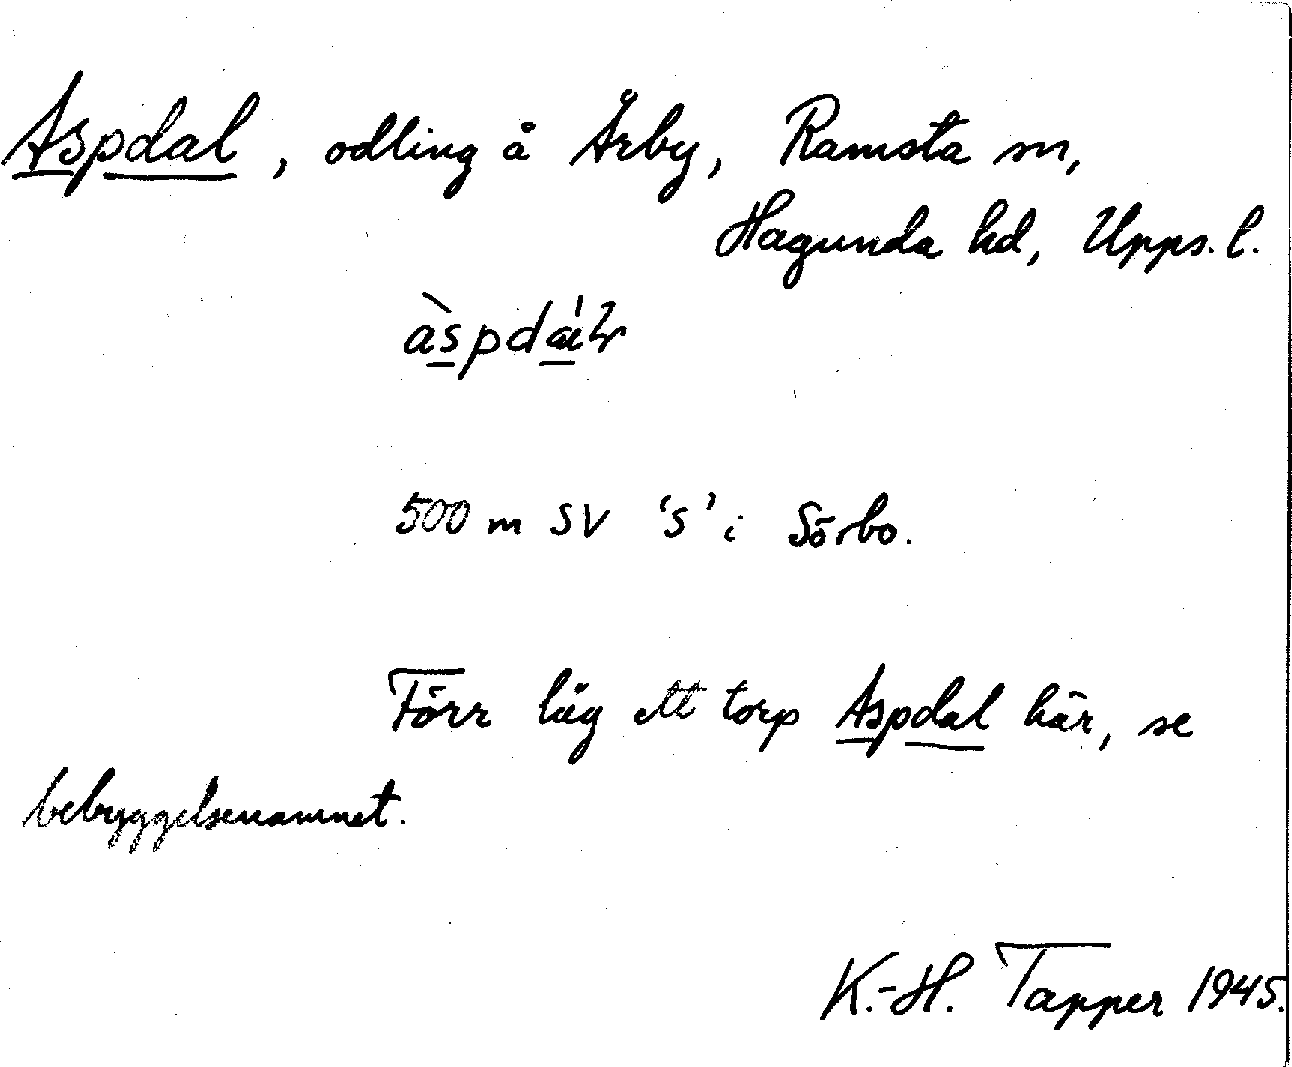 Aspdal, odling å Årby, Ramsta sn,
Hagunda hd, Upps. l.
500 m SV 'S' i Sörbo.
Förr låg ett torp Aspdal här, se
bebyggelsenamnet.
K.-H. Tapper 1945.